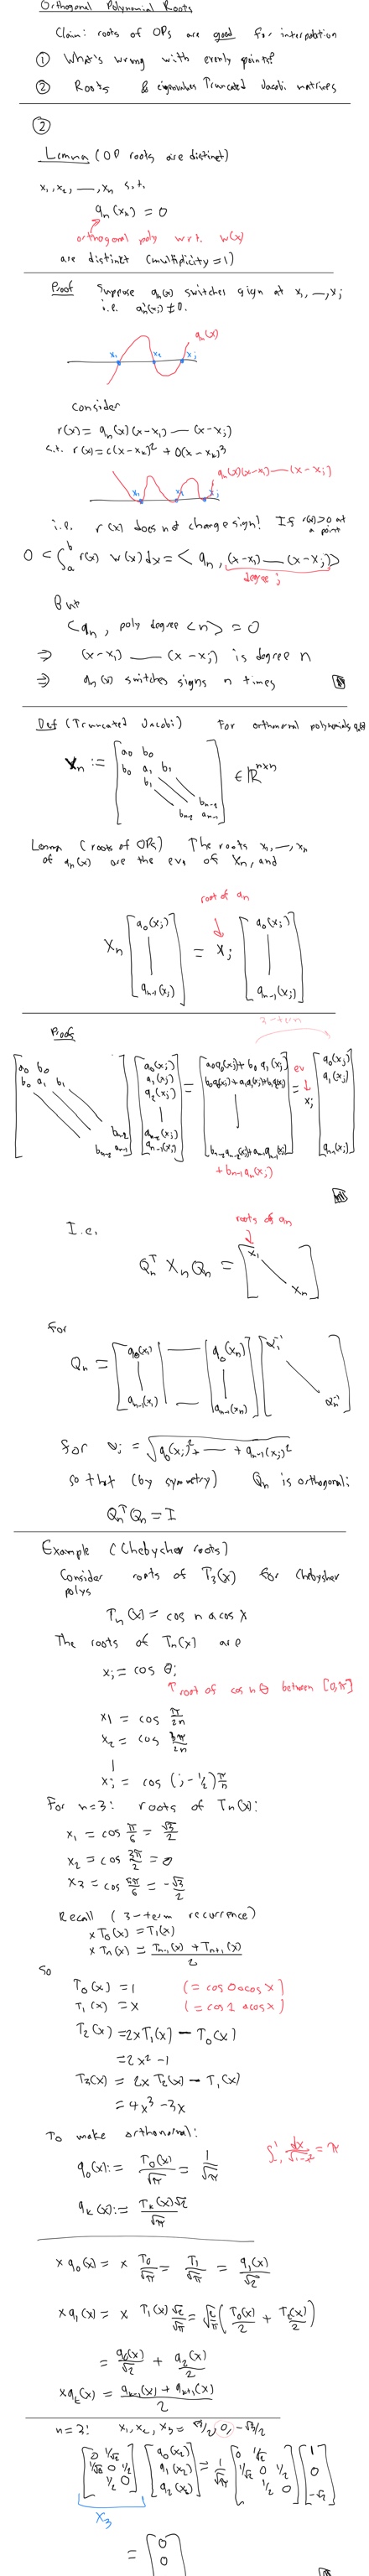 Orthogonal Polynomial Roots
Claim: roots of OPs are good for interpolation
① What's wrong with evenly points?
② Roots & eigenvalues Truncated Jacobi matrices
②
Lemma (OP roots are distinct)
x₁, x₂, —, xₙ s.t.
qₙ(xₖ) = 0
orthogonal poly w.r.t. w(x)
are distinct (multiplicity = 1)
Proof Suppose qₙ(x) switches sign at x₁, —, xⱼ
i.e. qₙ'(xⱼ) ≠ 0.
qₙ(x)
x₁ x₂ xⱼ
Consider
r(x) = qₙ(x)(x-x₁) — (x-xⱼ)
s.t. r(x) = c(x-xₖ)² + O(x-xₖ)³
qₙ(x)(x-x₁) — (x-xⱼ)
x₁ x₂ xⱼ
i.e. r(x) does not change sign! If r(x)>0 at a point
0 < ∫ₐᵇ r(x) w(x) dx = < qₙ, (x-x₁) — (x-xⱼ) >
degree j
But
< qₙ, poly degree < n > = 0
⇒ (x-x₁) — (x-xⱼ) is degree n
⇒ qₙ(x) switches signs n times
Def (Truncated Jacobi) For orthonormal polynomials
Xₙ := [ a₀ b₀
b₀ a₁ b₁
b₁
bₙ₋₂
bₙ₋₂ aₙ₋₁ ] ∈ ℝⁿˣⁿ
Lemma (roots of OPs) The roots x₁, —, xₙ
of qₙ(x) are the evs of Xₙ, and
root of qₙ
Xₙ [ q₀(xⱼ) | qₙ₋₁(xⱼ) ] = xⱼ [ q₀(xⱼ) | qₙ₋₁(xⱼ) ]
3-term
Proof
[ a₀ b₀
b₀ a₁ b₁
bₙ₋₂
bₙ₋₂ aₙ₋₁ ] [ q₀(xⱼ) q₁(xⱼ) q₂(xⱼ) | qₙ₋₂(xⱼ) qₙ₋₁(xⱼ) ] = [ a₀q₀(xⱼ) + b₀q₁(xⱼ)
b₀q₀(xⱼ) + a₁q₁(xⱼ) + b₁q₂(xⱼ)
|
bₙ₋₂qₙ₋₂(xⱼ) + aₙ₋₁qₙ₋₁(xⱼ) ] = ev xⱼ [ q₀(xⱼ) q₁(xⱼ) | qₙ₋₁(xⱼ) ]
+ bₙ₋₁qₙ(xⱼ)
I.e.
roots of qₙ
Qₙᵀ Xₙ Qₙ = [ x₁ \ xₙ ]
for
Qₙ = [ q₀(x₁) | qₙ₋₁(x₁) ] — [ q₀(xₙ) | qₙ₋₁(xₙ) ] [ α₁⁻¹ \ αₙ⁻¹ ]
for αⱼ = √(q₀(xⱼ)² + — + qₙ₋₁(xⱼ)²)
so that (by symmetry) Qₙ is orthogonal:
QₙᵀQₙ = I
Example (Chebyshev roots)
Consider roots of T₃(x) for Chebyshev
polys
Tₙ(x) = cos n acos x
The roots of Tₙ(x) are
xⱼ = cos θⱼ
↑ root of cos nθ between [0,π]
x₁ = cos π/2n
x₂ = cos 3π/2n
|
xⱼ = cos (j-½)π/n
For n=3: roots of Tₙ(x):
x₁ = cos π/6 = √3/2
x₂ = cos 3π/2 = 0
x₃ = cos 5π/6 = -√3/2
Recall (3-term recurrence)
x T₀(x) = T₁(x)
x Tₙ(x) = (Tₙ₋₁(x) + Tₙ₊₁(x))/2
So
T₀(x) = 1 (= cos 0 acos x)
T₁(x) = x (= cos 1 acos x)
T₂(x) = 2x T₁(x) - T₀(x)
= 2x² - 1
T₃(x) = 2x T₂(x) - T₁(x)
= 4x³ - 3x
To make orthonormal:
q₀(x) := T₀(x)/√π = 1/√π
∫₋₁¹ dx/√(1-x²) = π
qₖ(x) := Tₖ(x)√2/√π
x q₀(x) = x T₀/√π = T₁/√π = q₁(x)/√2
x q₁(x) = x T₁(x)√2/√π = √2/√π (T₀(x)/2 + T₂(x)/2)
= q₀(x)/√2 + q₂(x)/2
x qₖ(x) = (qₖ₋₁(x) + qₖ₊₁(x))/2
n=3: x₁, x₂, x₃ = √3/2, 0, -√3/2
[ 0 1/√2
1/√2 0 1/2
1/2 0 ] [ q₀(x₂) q₁(x₂) q₂(x₂) ] = 1/√π [ 0 1/√2
1/√2 0 1/2
1/2 0 ] [ 1 0 -√2 ]
X₃
= [ 0 0